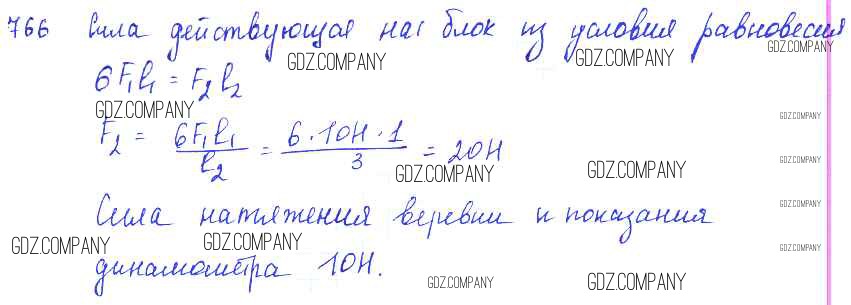 766 Сила действующая на блок из условия равновесия
GDZ.COMPANY GDZ.COMPANY GDZ.COMPANY
6F₁l₁ = F₂l₂
GDZ.COMPANY GDZ.COMPANY
F₂ = 6F₁l₁/l₂ = 6·10Н·1/3 = 20Н
GDZ.COMPANY GDZ.COMPANY GDZ.COMPANY
GDZ.COMPANY
Сила натяжения веревки и показания
GDZ.COMPANY GDZ.COMPANY GDZ.COMPANY
динамометра 10Н.
GDZ.COMPANY GDZ.COMPANY